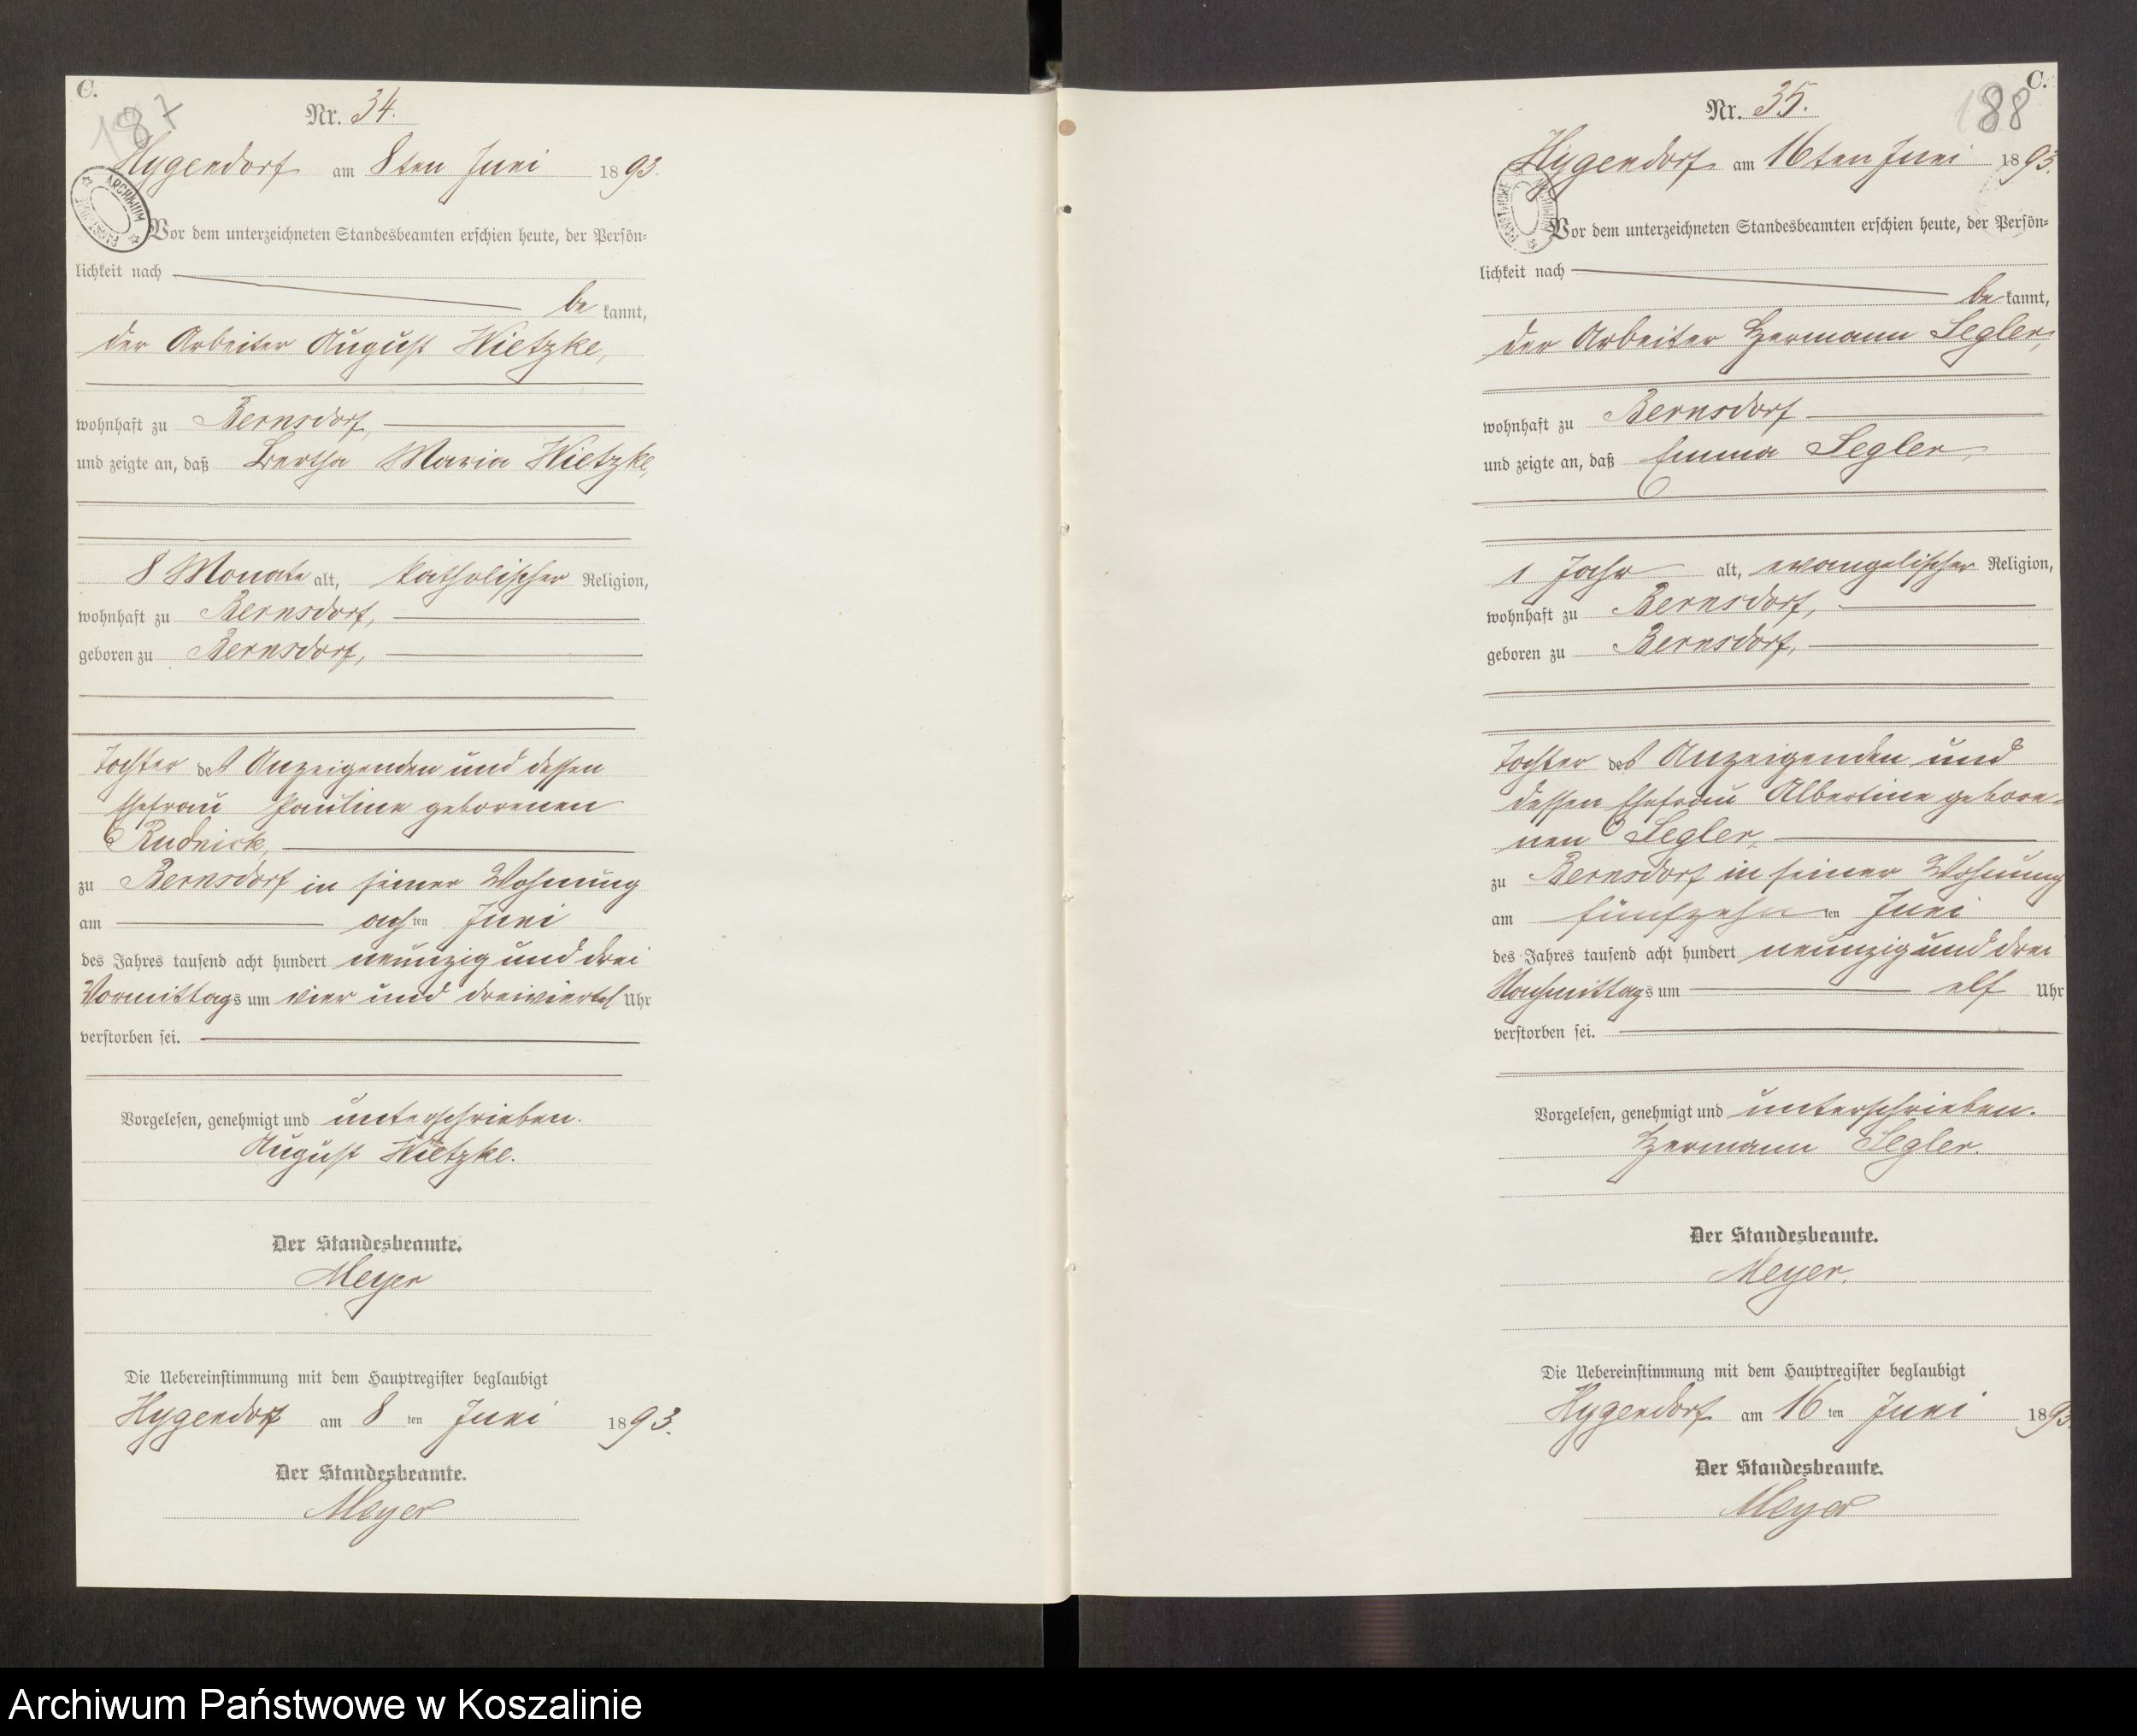 C.
187
Nr. 34.
Hygendorf am 8ten Juni 1893.
Vor dem unterzeichneten Standesbeamten erschien heute, der Persön-
lichkeit nach
be kannt,
der Arbeiter August Wietzke,
wohnhaft zu Bernsdorf,
und zeigte an, daß Bertha Maria Wietzke,
8 Monate alt, katholischer Religion,
wohnhaft zu Bernsdorf,
geboren zu Bernsdorf,
Tochter des Anzeigenden und dessen
Ehefrau Pauline geborenen
Rudnick,
zu Bernsdorf in seiner Wohnung
am achten Juni
des Jahres tausend acht hundert neunzig und drei
Vormittags um vier und dreiviertel Uhr
verstorben sei.
Vorgelesen, genehmigt und unterschrieben.
August Wietzke.
Der Standesbeamte.
Meyer
Die Uebereinstimmung mit dem Hauptregister beglaubigt
Hygendorf am 8 ten Juni 1893.
Der Standesbeamte.
Meyer
C.
188
Nr. 35.
Hygendorf am 16ten Juni 1893.
Vor dem unterzeichneten Standesbeamten erschien heute, der Persön-
lichkeit nach
be kannt,
der Arbeiter Hermann Segler,
wohnhaft zu Bernsdorf
und zeigte an, daß Emma Segler,
1 Jahr alt, evangelischer Religion,
wohnhaft zu Bernsdorf,
geboren zu Bernsdorf,
Tochter des Anzeigenden und
dessen Ehefrau Albertine gebore-
nen Segler,
zu Bernsdorf in seiner Wohnung
am fünfzehn ten Juni
des Jahres tausend acht hundert neunzig und drei
Nachmittags um elf Uhr
verstorben sei.
Vorgelesen, genehmigt und unterschrieben.
Hermann Segler.
Der Standesbeamte.
Meyer.
Die Uebereinstimmung mit dem Hauptregister beglaubigt
Hygendorf am 16 ten Juni 1893.
Der Standesbeamte.
Meyer
Archiwum Państwowe w Koszalinie